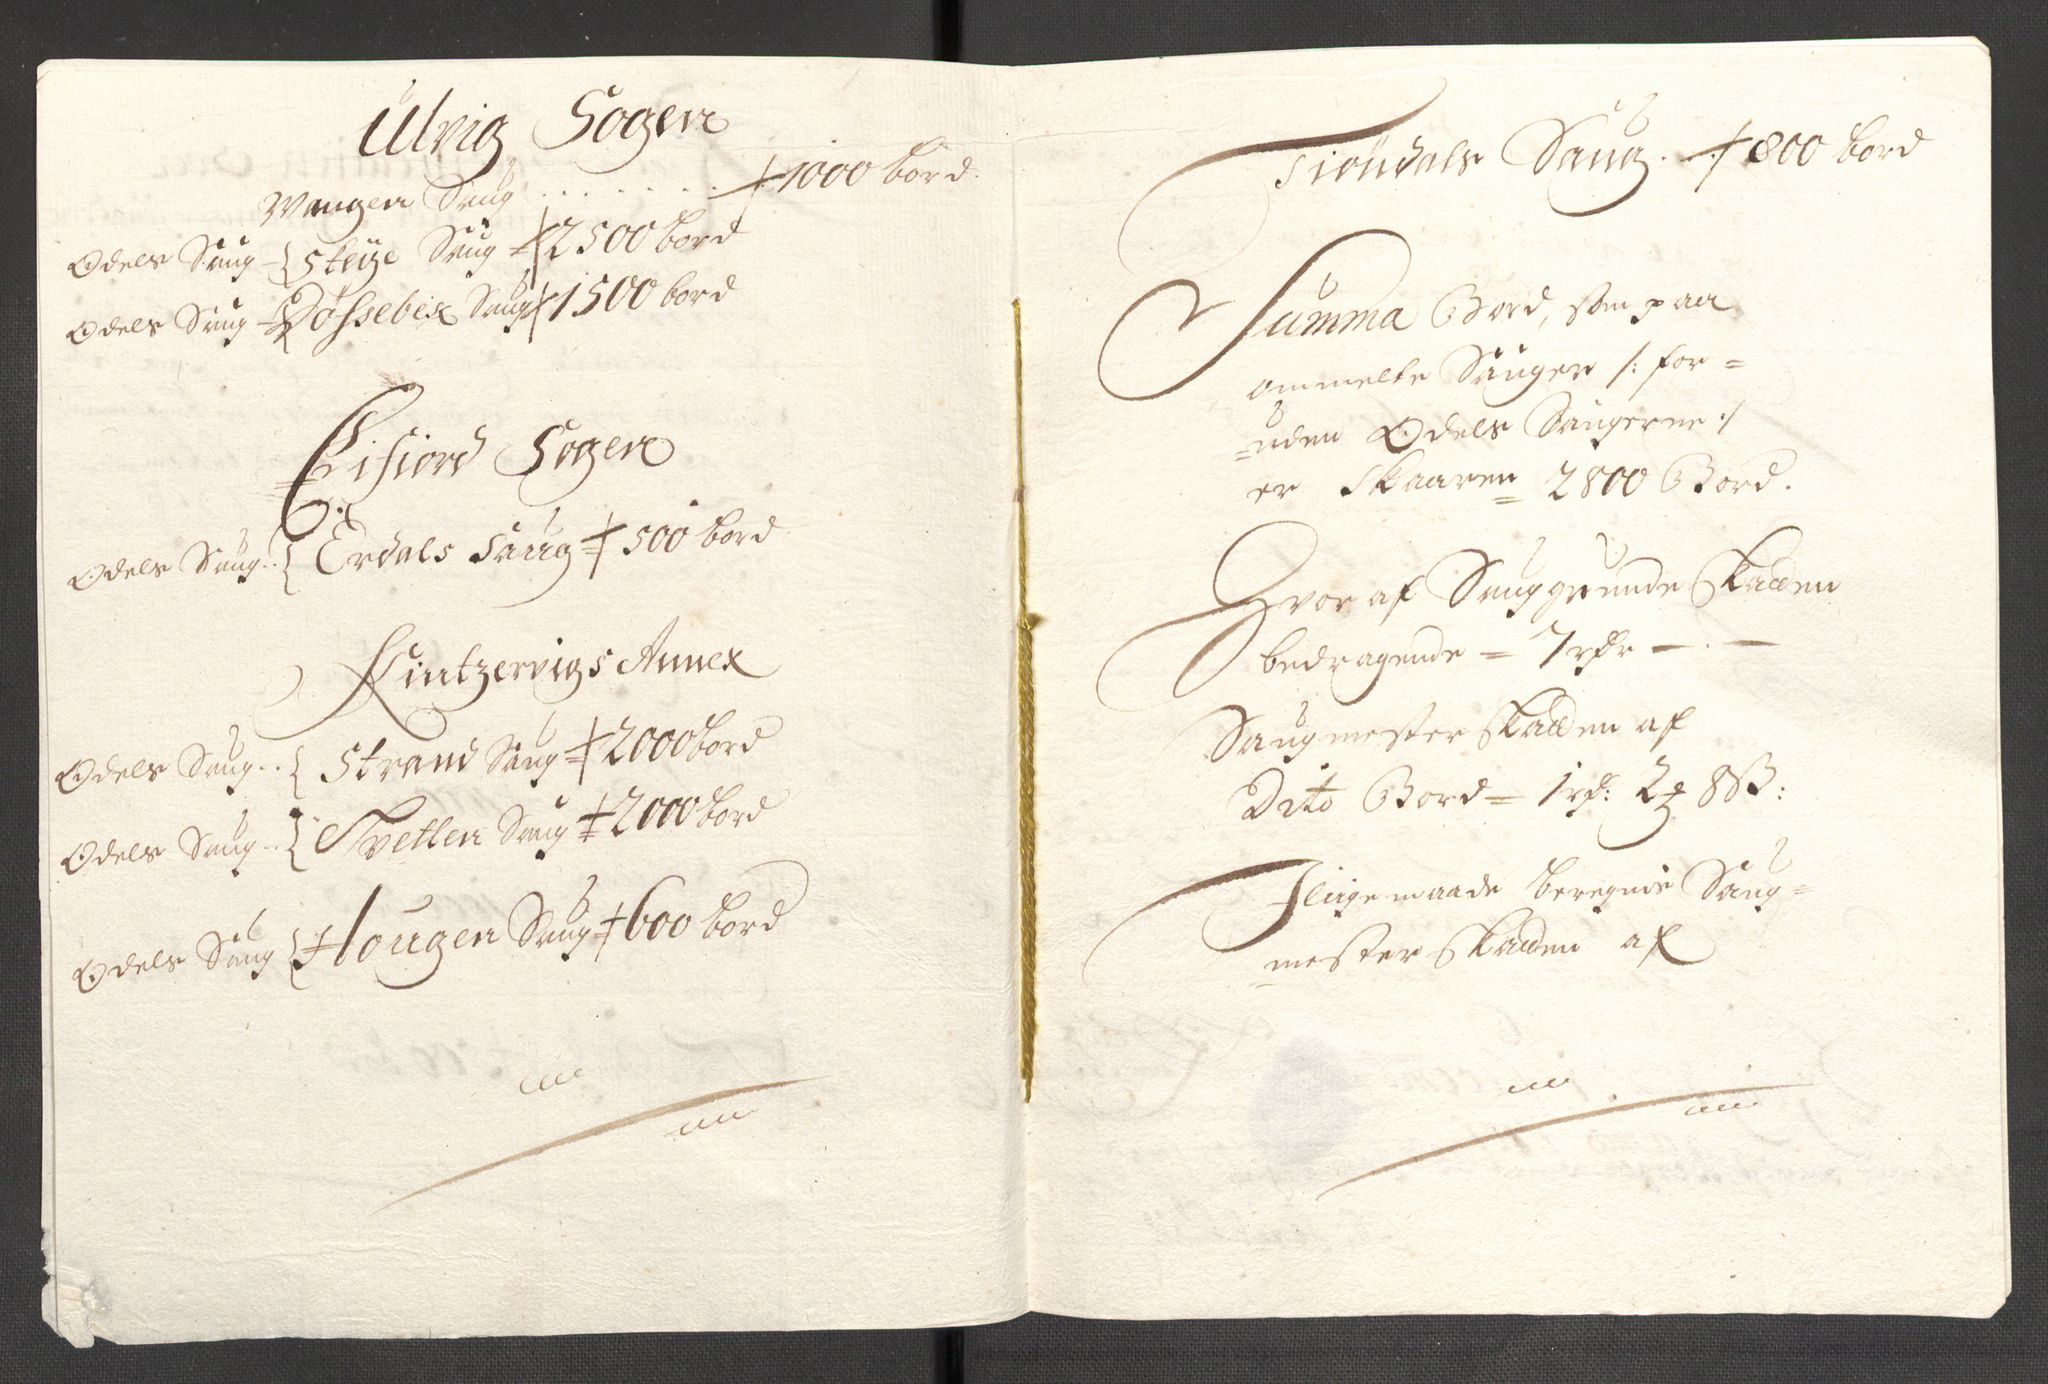 Ulvig Sogen
Wangen Saug . . . . . . . 1000 bord.
Odels Saug { Steye Saug = 2500 bord
Odels Saug { Døssebex Saug 1500 bord
Eifiord Sogen
Odels Saug.. { Erdals Saug = 500 bord
Kintzervigs Annex
Odels Saug.. { Strand Saug = 2000 bord
Odels Saug.. { Tvetten Saug = 2000 bord
Odels Saug { Hougen Saug = 600 bord
Tiøudals Saug. 800 bord
Summa Bord, som paa
ommelte Sauger /: for=
=uden Odels Saugerne :/
er Skaaren = 2800 Bord.
Hvor af Sauggrunde Skatten
bedragende = 7 rdr — . —
Saugmester Skatten af
Dito Bord = 1 rd: 2 8 ß:
Iligemaade beregnis Saug=
mester Skatten af